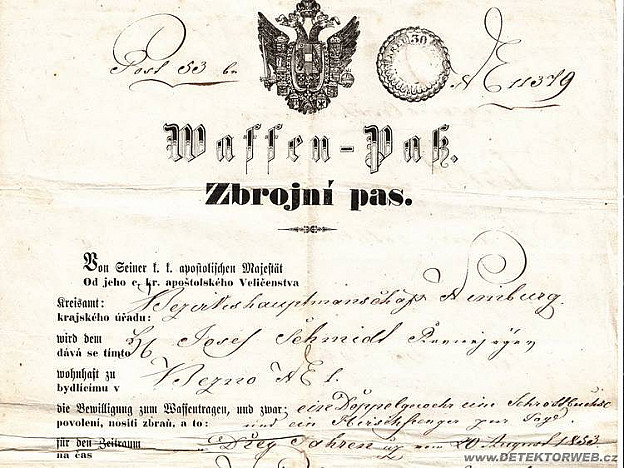 Post 53 N E 11379
36
Waffen-Paß.
Zbrojní pas.
Von Seiner k. k. apostolischen Majestät
Od jeho c. kr. apoštolského Veličenstva
Kreisamt: Bezirkshauptmanschaft Nimburg.
krajského úřadu:
wird dem H Josef Schmidt
dává se tímto
wohnhaft zu Bezno N E 1.
bydlícímu v
die Bewilligung zum Waffentragen, und zwar: eine Doppelgewehr ein Schrottbüchse
povolení, nositi zbraň, a to: und ein Hirschfenger zur Jagd
für den Zeitraum Jahren vom 20 August 1853
na čas
WWW.DETEKTORWEB.CZ